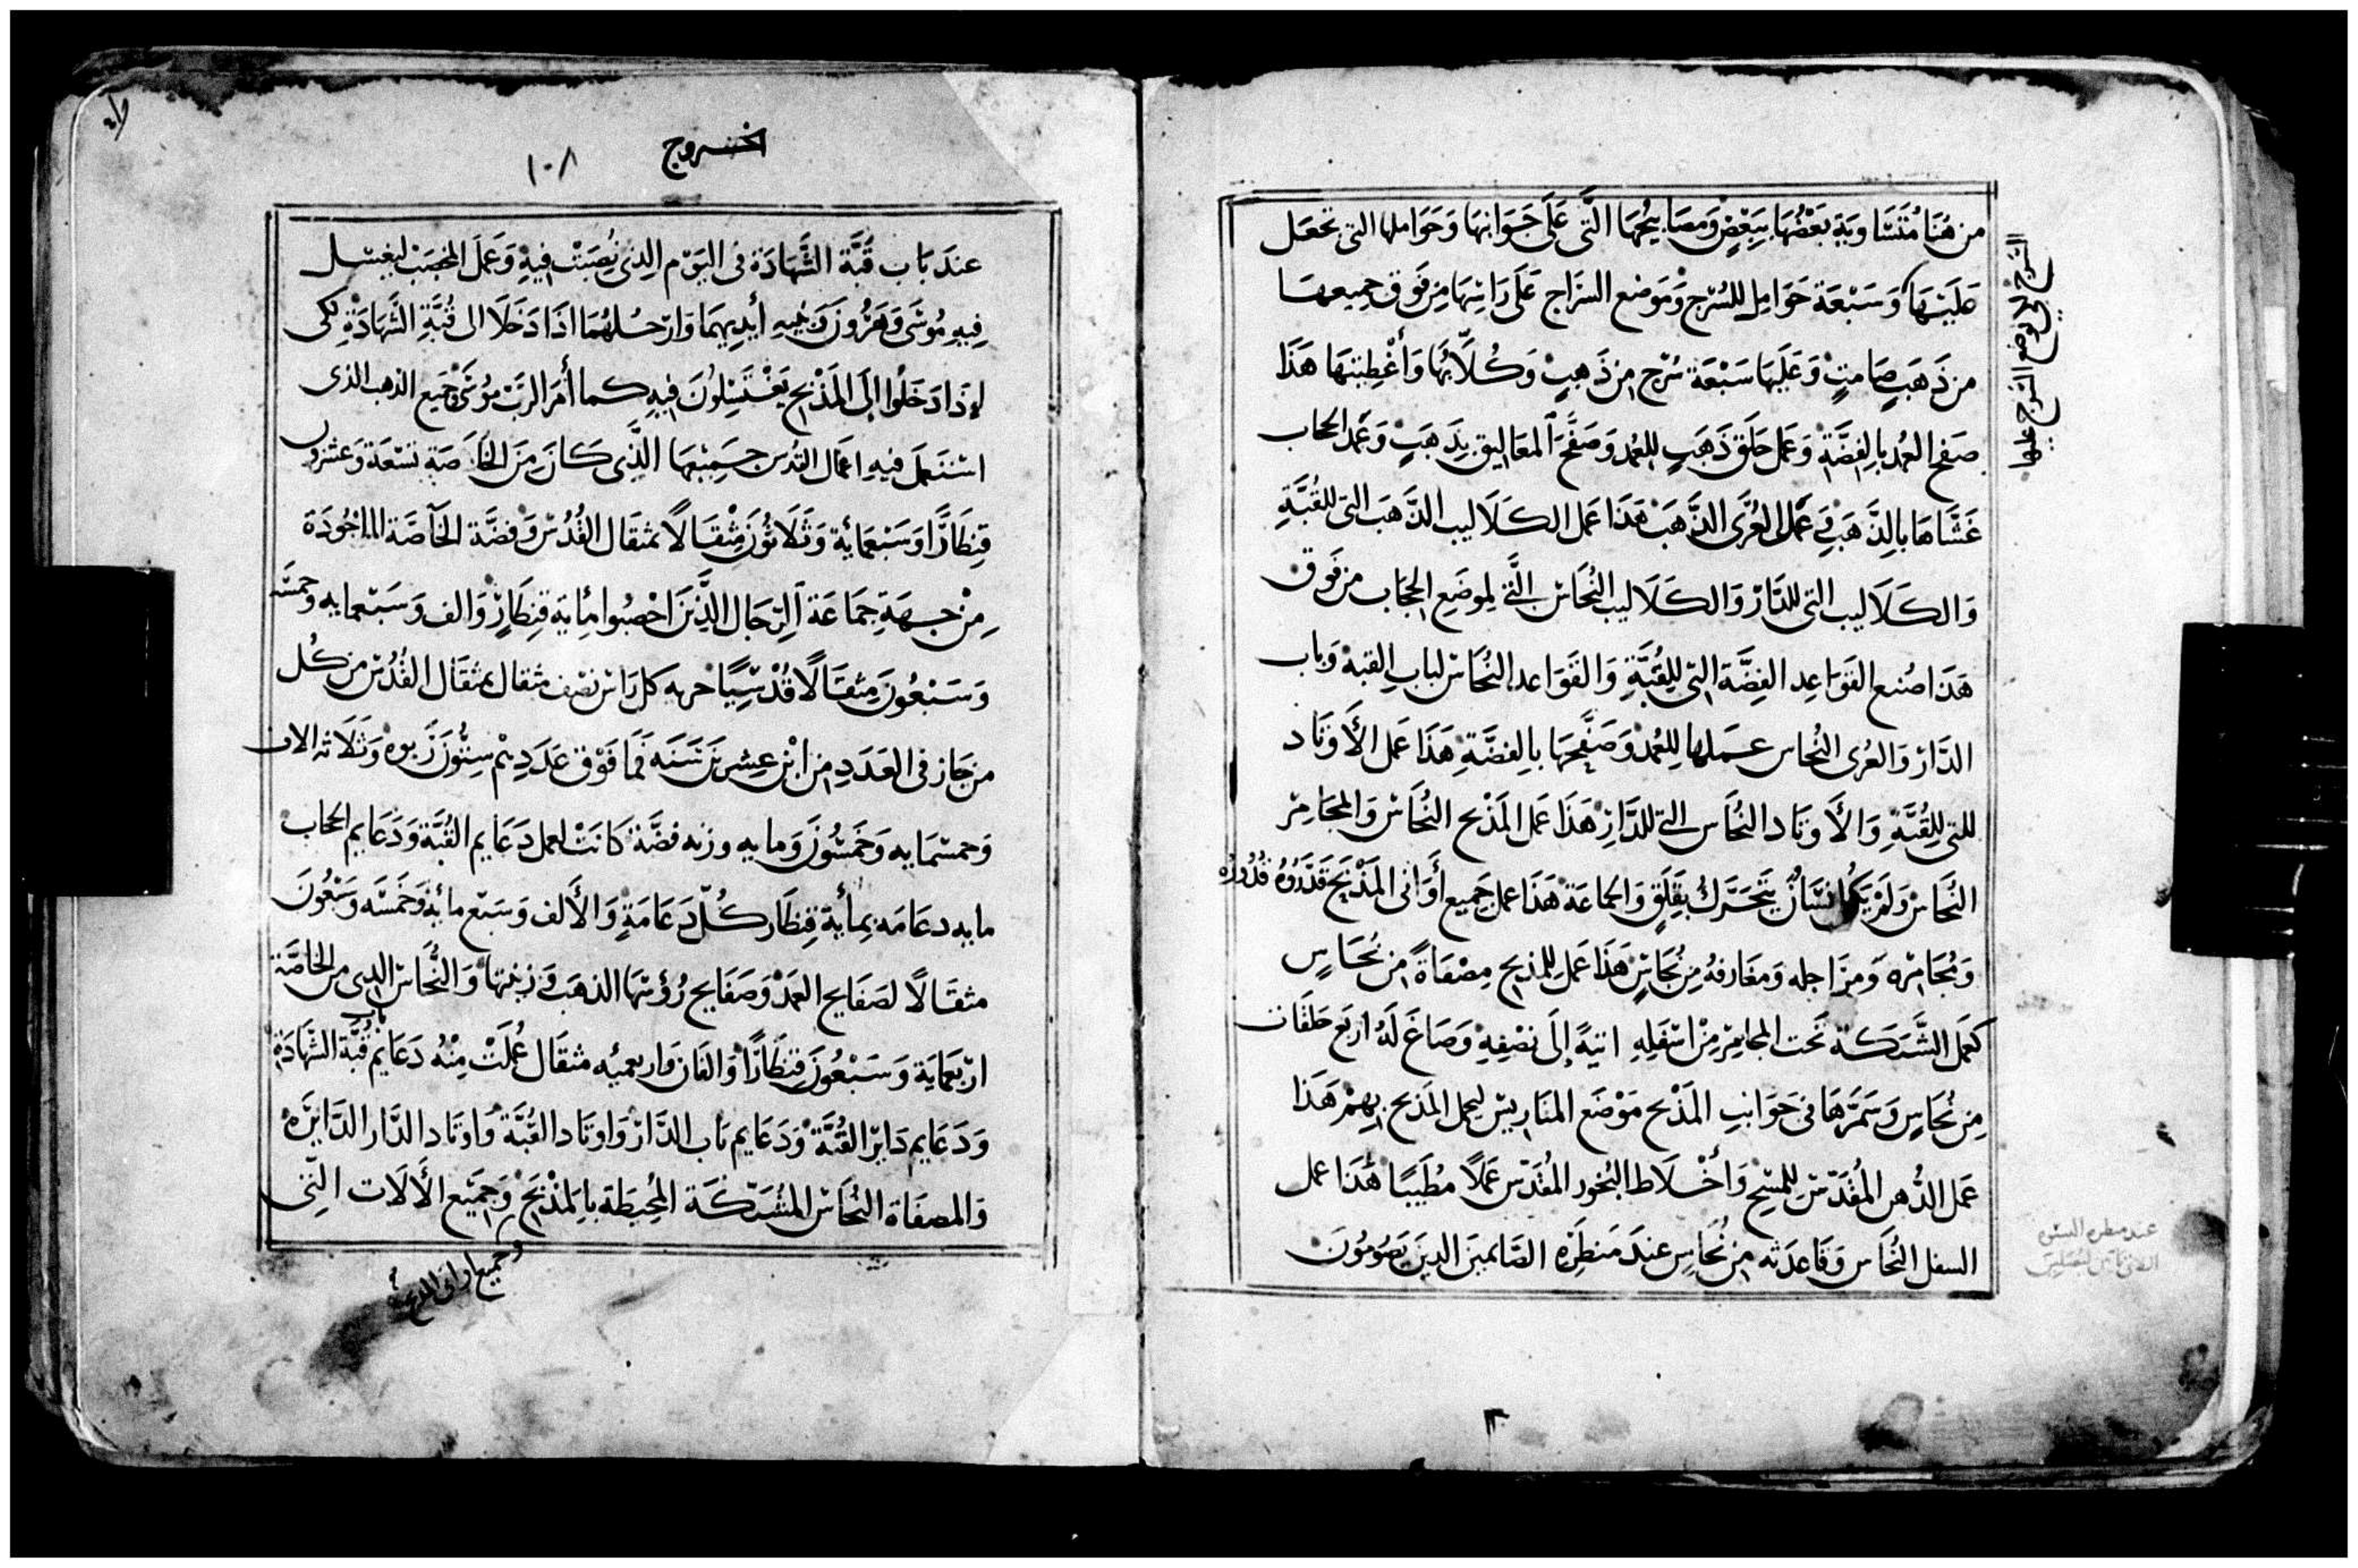 من هُنَا مُتَسَاوية بَعْضُهَا بِبَعْضٍ وَمصَابيحُهَا الَّتى عَلَى جَوَانِبهَا وَحَوَاملها التى تجعَل
عَليْهَا وَسَبْعَة حَوَامِل للسُرج وَمَوضع السرَاج عَلَى رَاسِهَا مِن فَوق جميعهَا
من ذَهَبٍ صَامتٍ وَعَليهَا سَبْعَة سُرج مِن ذَهَبٍ وَكُلاَّبُهَا وَأغْطِيتهَا هَذَا
صفح العُمد بالفِضَّة وَعَمل حَلَق ذَهَبٍ للعُمد وَصَفَّحَ المعَاليق بِذَهَبٍ وَعُمد الحجاب
غَشَّاهَا بالِذَهَب وَعَمل العُرَى الذَهَب هَذَا عَمل الكَلاَليب الذَهَب التى للقُبَّةِ
وَالكَلاَليب التى للدَّار وَالكَلاَليب النُحَاس الَّتى لموضَعِ الحجَاب من فَوق
هَذَا صُنع القَوَاعِد الفِضَّة التى للِقُبَّةِ وَالقَوَاعد النُحَاس لبابِ القبة وَباب
الدَّار وَالعُرى النُحاس عملها للعُمد وَصَفَّحَهَا بالِفضَّةِ هَذَا عَمل الأَوتَاد
للتى للِقُبَّةِ وَالأَوتَاد النُحَاس التى للدَّارِ هَذَا عَمَل المَذْبح النُحَاس وَالمجَامِر
النُحَاس وَلَمْ يَكُ انسَان يَتَحَرَّك بقَلَقٍ وَالجماعَة هَذَا عمل جَميع أوَانى المَذْبَح قُدُورُه
وَمجَامره وَمرَاجله وَمغَارفهُ مِن نُحَاسٍ هَذَا عَمل للمذبح مِصْفَاةً من نُحَاسٍ
كعَمل الشَّبَكَة تَحت المجامِر مِنْ اسْفَلِهِ إلَى نصْفِهِ وَصَاغَ لَهُ اربَع حَلقَات
مِن نُحَاسٍ وَسَمَّرَهَا فى جَوَانبِ المَذْبح مَوْضَع المتَاريس ليحمل المَذبح بِهِمْ هَذَا
عَمل الدُّهن المُقَدَّس للمسح وَأخْلاَط البُخور المُقَدَّس عَمَلاً مُطَيبًا هَذَا عمل
السفل النُحَاس وَقَاعدَته مِن نُحَاسِ عندَ مَنظِرَه الصَّائمين الذينَ يَصُومُونَ
السرج لكي توضع السرج عليها
عندَ بَاب قُبَّة الشَّهَادَة فى اليَوْم الذِى نُصبَتْ فيهِ وَعَمل المخضَب ليغسل
فيهِ مُوسَى وَهَرُون وَبنيه أيدِيهمَا وَارْجُلهُمَا اذَا دَخَلاَ الى قُبَّةِ الشَّهَادَةِ لكى
إذَا دَخَلُوا إلَى المَذْبح يَغْتَسِلُونَ فيهِ كما أمَر الرَبّ مُوسَى وَجَميع الذهب الذى
اسْتعمل فيهِ اعمَال القدس جميعهَا الَّذِى كَانَ مِنَ الخَاصَة تسْعَة وَعشرون
قنِطَارًا وَسَبْعمَاية وَثَلاَثُونَ مِثْقَالاً بمثقَال القُدْس وَفضَّة الخَاصَّة الماخُوذَة
مِنْ جهَةِ جمَاعَة الرّجَال الَّذِينَ احْصُوا مأيَة قِنِطَارٍ وَالف وَسَبْعمايه وخمسَه
وَسَبْعُونَ مِثقَالاً قُدْسِيًّا كل رَاس نصف مثقال بمثقَال القُدْس من كُل
من جَاز فى العَدَدِ من ابْن عِشرينَ سَنَه فَمَا فَوْق عَدَدِ ستُّونَ رَبوه وَثلاَثه الاف
وَخمسمايه وَخَمسُونَ وَمايه وزنه فضَّة كَانَتْ لعمل دَعَايم القُبَّة وَدَعَايم الحجَاب
مايه دعَامَه بمأيَة قِنطَار كُلّ دَعَامَةٍ وَالأَلف وَسَبْع مائة وَخَمسَه وَسَبْعُونَ
مثقَالاً لصَفَايح العَمَد وَصَفَايح رُؤسهَا الذهَب وَزينهَا وَالنُّحَاس الذى من الخاصَّة
ارْبعَمَايَة وَسَبْعُونَ قنِطَارًا وَالفَان وَاربعميه مثقَال عُملَتْ مِنْهُ دَعَايم باب قُبَّة الشَهَادَة
وَدَعَايم دَاير القُبَّة وَدَعَايم بَاب الدَّار وَاوتَاد القُبَّة وَاوتَاد الدَّار الدَّايرَه
وَالمصفَاة النُحَاس المُشبَّكَة المُحِيطَة بالمَذْبَح وَجَميْع الأَلاَت التِى
وجميع اوانى المذبح
الخروج
١٠٨